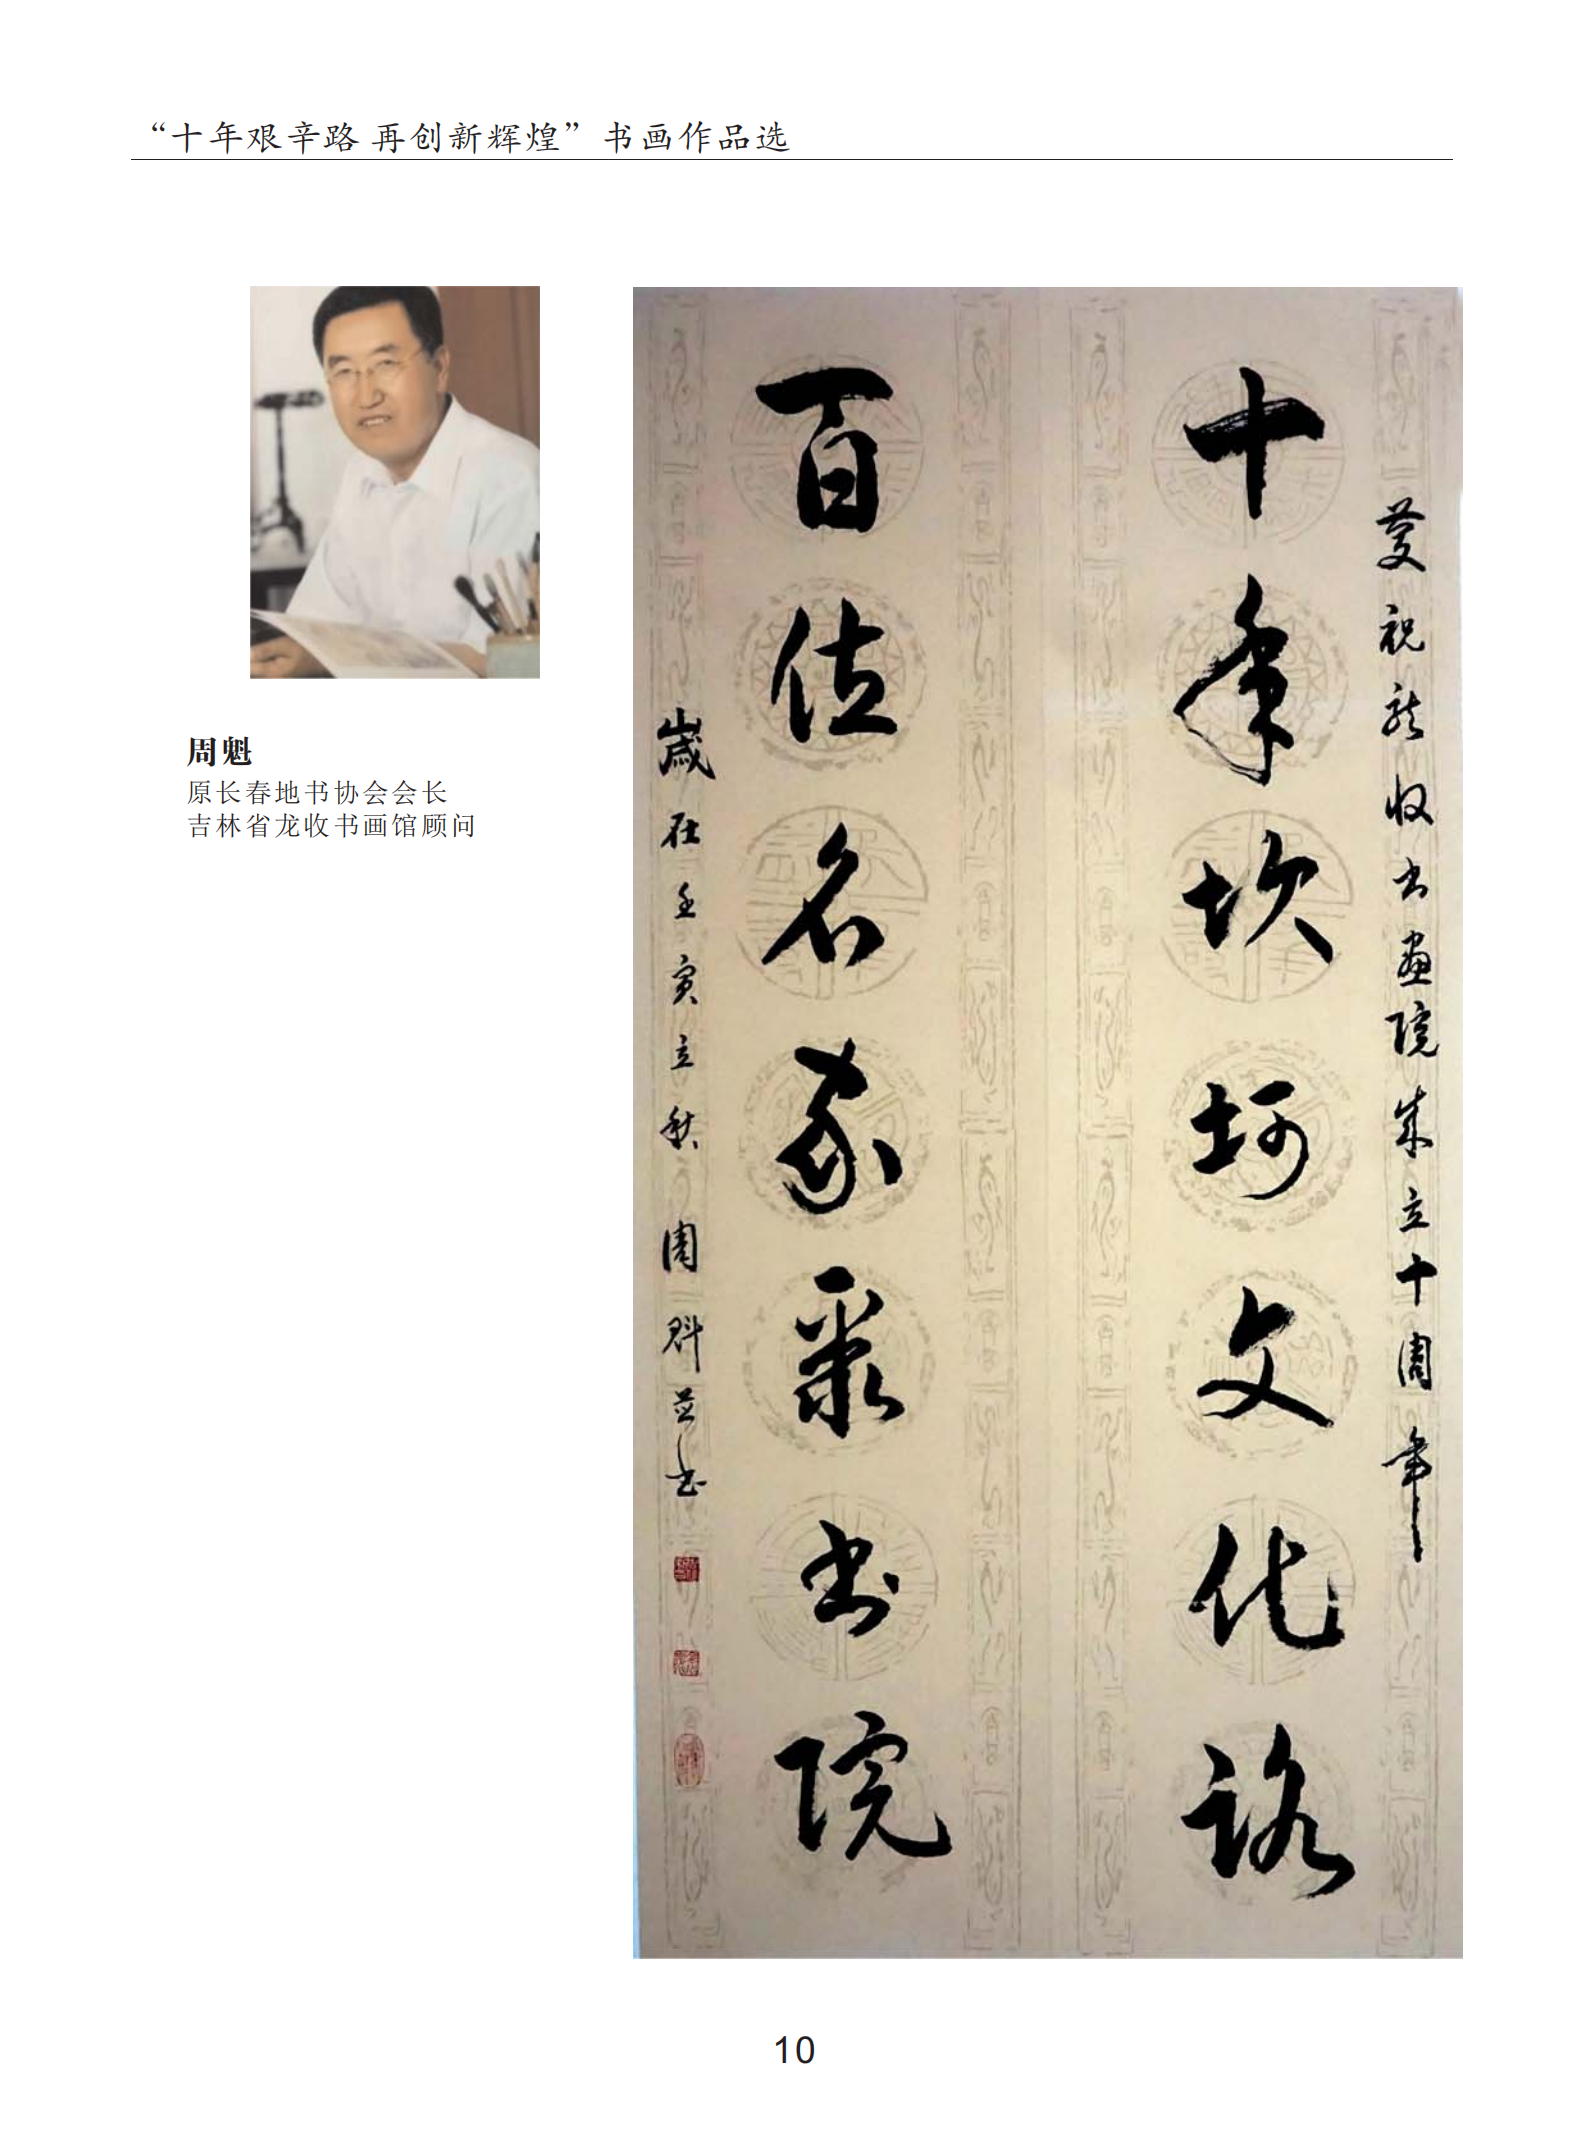 “十年艰辛路 再创新辉煌”书画作品选
周魁
原长春地书协会会长
吉林省龙收书画馆顾问
慶祝龙收书画院成立十周年
十年坎坷文化路
百位名家聚书院
歲在壬寅立秋 周魁並书
10